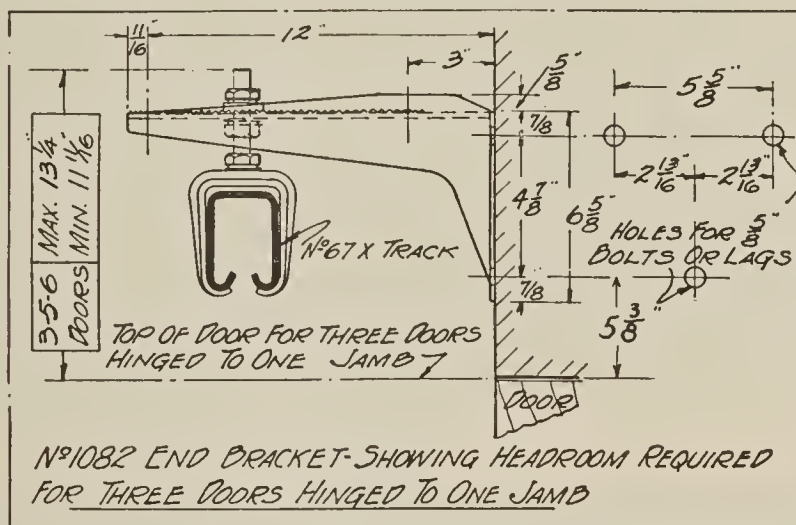 11/16"
12"
3"
5/8"
7/8
4 7/8"
6 5/8"
7/8
5 5/8"
2 13/16"
2 13/16"
HOLES FOR 5/8"
BOLTS OR LAGS
5 3/8"
3-5-6
DOORS
MAX. 13 1/4"
MIN. 11 1/16
Nº67X TRACK
TOP OF DOOR FOR THREE DOORS
HINGED TO ONE JAMB
DOOR
Nº1082 END BRACKET-SHOWING HEADROOM REQUIRED
FOR THREE DOORS HINGED TO ONE JAMB